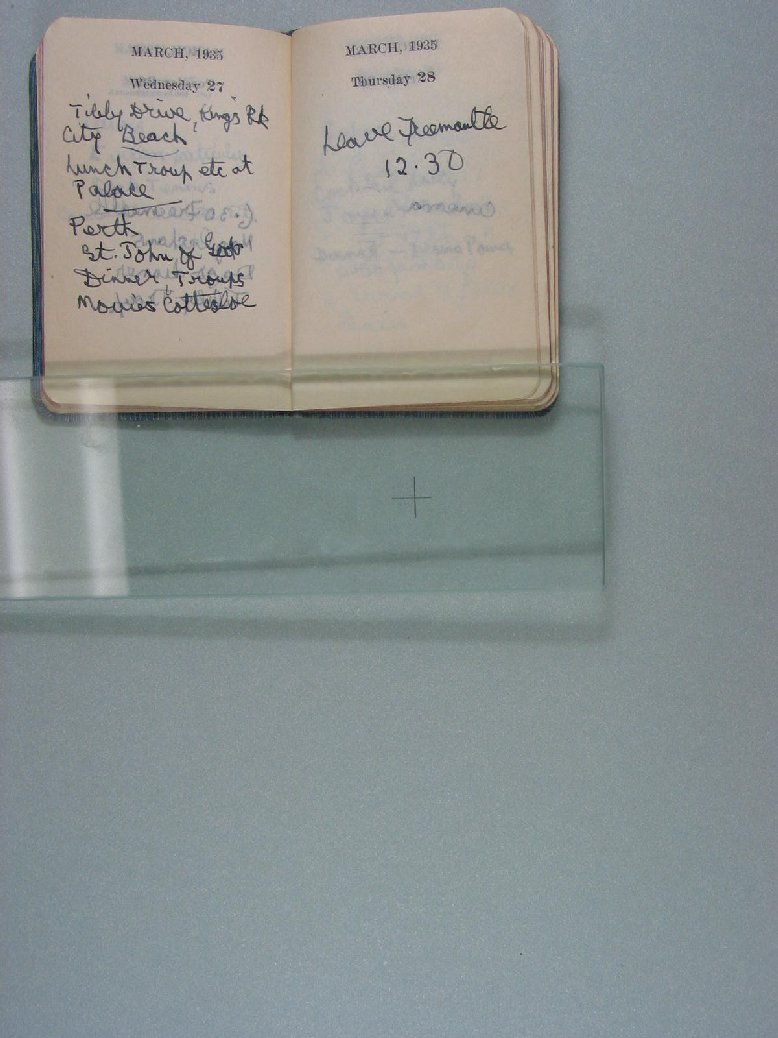 MARCH, 1935
Wednesday 27
Tibby Drive, King's Pk
City Beach
Lunch Troup etc at
Palace
Perth
St. John of God
Dinner, Troups
Movies Cottesloe
MARCH, 1935
Thursday 28
Leave Freemantle
12.30